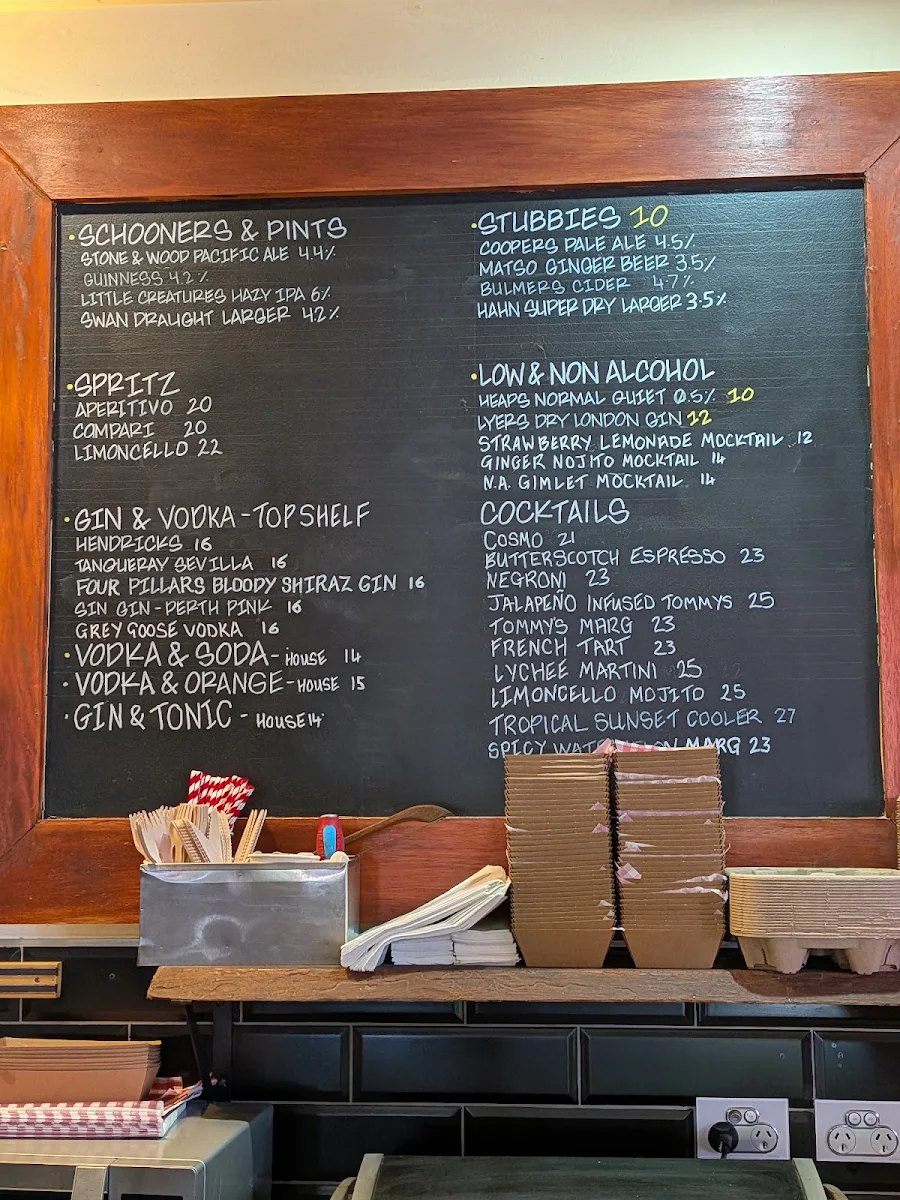 ·SCHOONERS & PINTS
STONE & WOOD PACIFIC ALE 4.4%
GUINNESS 4.2%
LITTLE CREATURES HAZY IPA 6%
SWAN DRAUGHT LARGER 4.2%
·SPRITZ
APERITIVO 20
COMPARI 20
LIMONCELLO 22
·GIN & VODKA - TOP SHELF
HENDRICKS 16
TANQUERAY SEVILLA 16
FOUR PILLARS BLOODY SHIRAZ GIN 16
GIN GIN - PERTH PINK 16
GREY GOOSE VODKA 16
·VODKA & SODA - HOUSE 14
·VODKA & ORANGE - HOUSE 15
·GIN & TONIC - HOUSE 14
·STUBBIES 10
COOPERS PALE ALE 4.5%
MATSO GINGER BEER 3.5%
BULMERS CIDER 4.7%
HAHN SUPER DRY LARGER 3.5%
·LOW & NON ALCOHOL
HEAPS NORMAL QUIET 0.5% 10
LYERS DRY LONDON GIN 12
STRAWBERRY LEMONADE MOCKTAIL 12
GINGER NOJITO MOCKTAIL 14
N.A. GIMLET MOCKTAIL 14
COCKTAILS
COSMO 21
BUTTERSCOTCH ESPRESSO 23
NEGRONI 23
JALAPEÑO INFUSED TOMMYS 25
TOMMY'S MARG 23
FRENCH TART 23
LYCHEE MARTINI 25
LIMONCELLO MOJITO 25
TROPICAL SUNSET COOLER 27
SPICY MARG 23